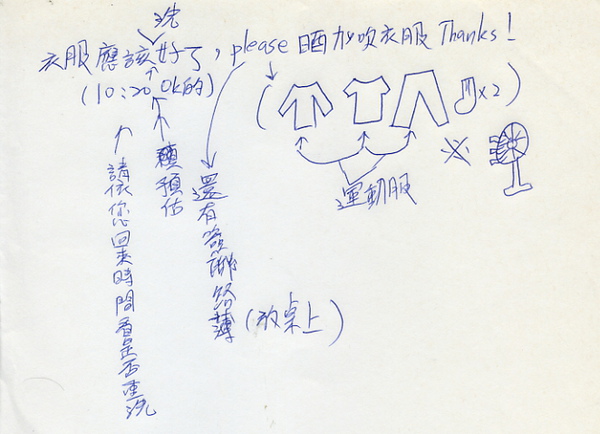 洗
衣服應該好了，please 晒加吹衣服 Thanks!
(10:20 Ok的)
( x2 )
※
運動服
預估
請依您回來時間看是否重洗
還有簽聯絡薄
(放桌上)